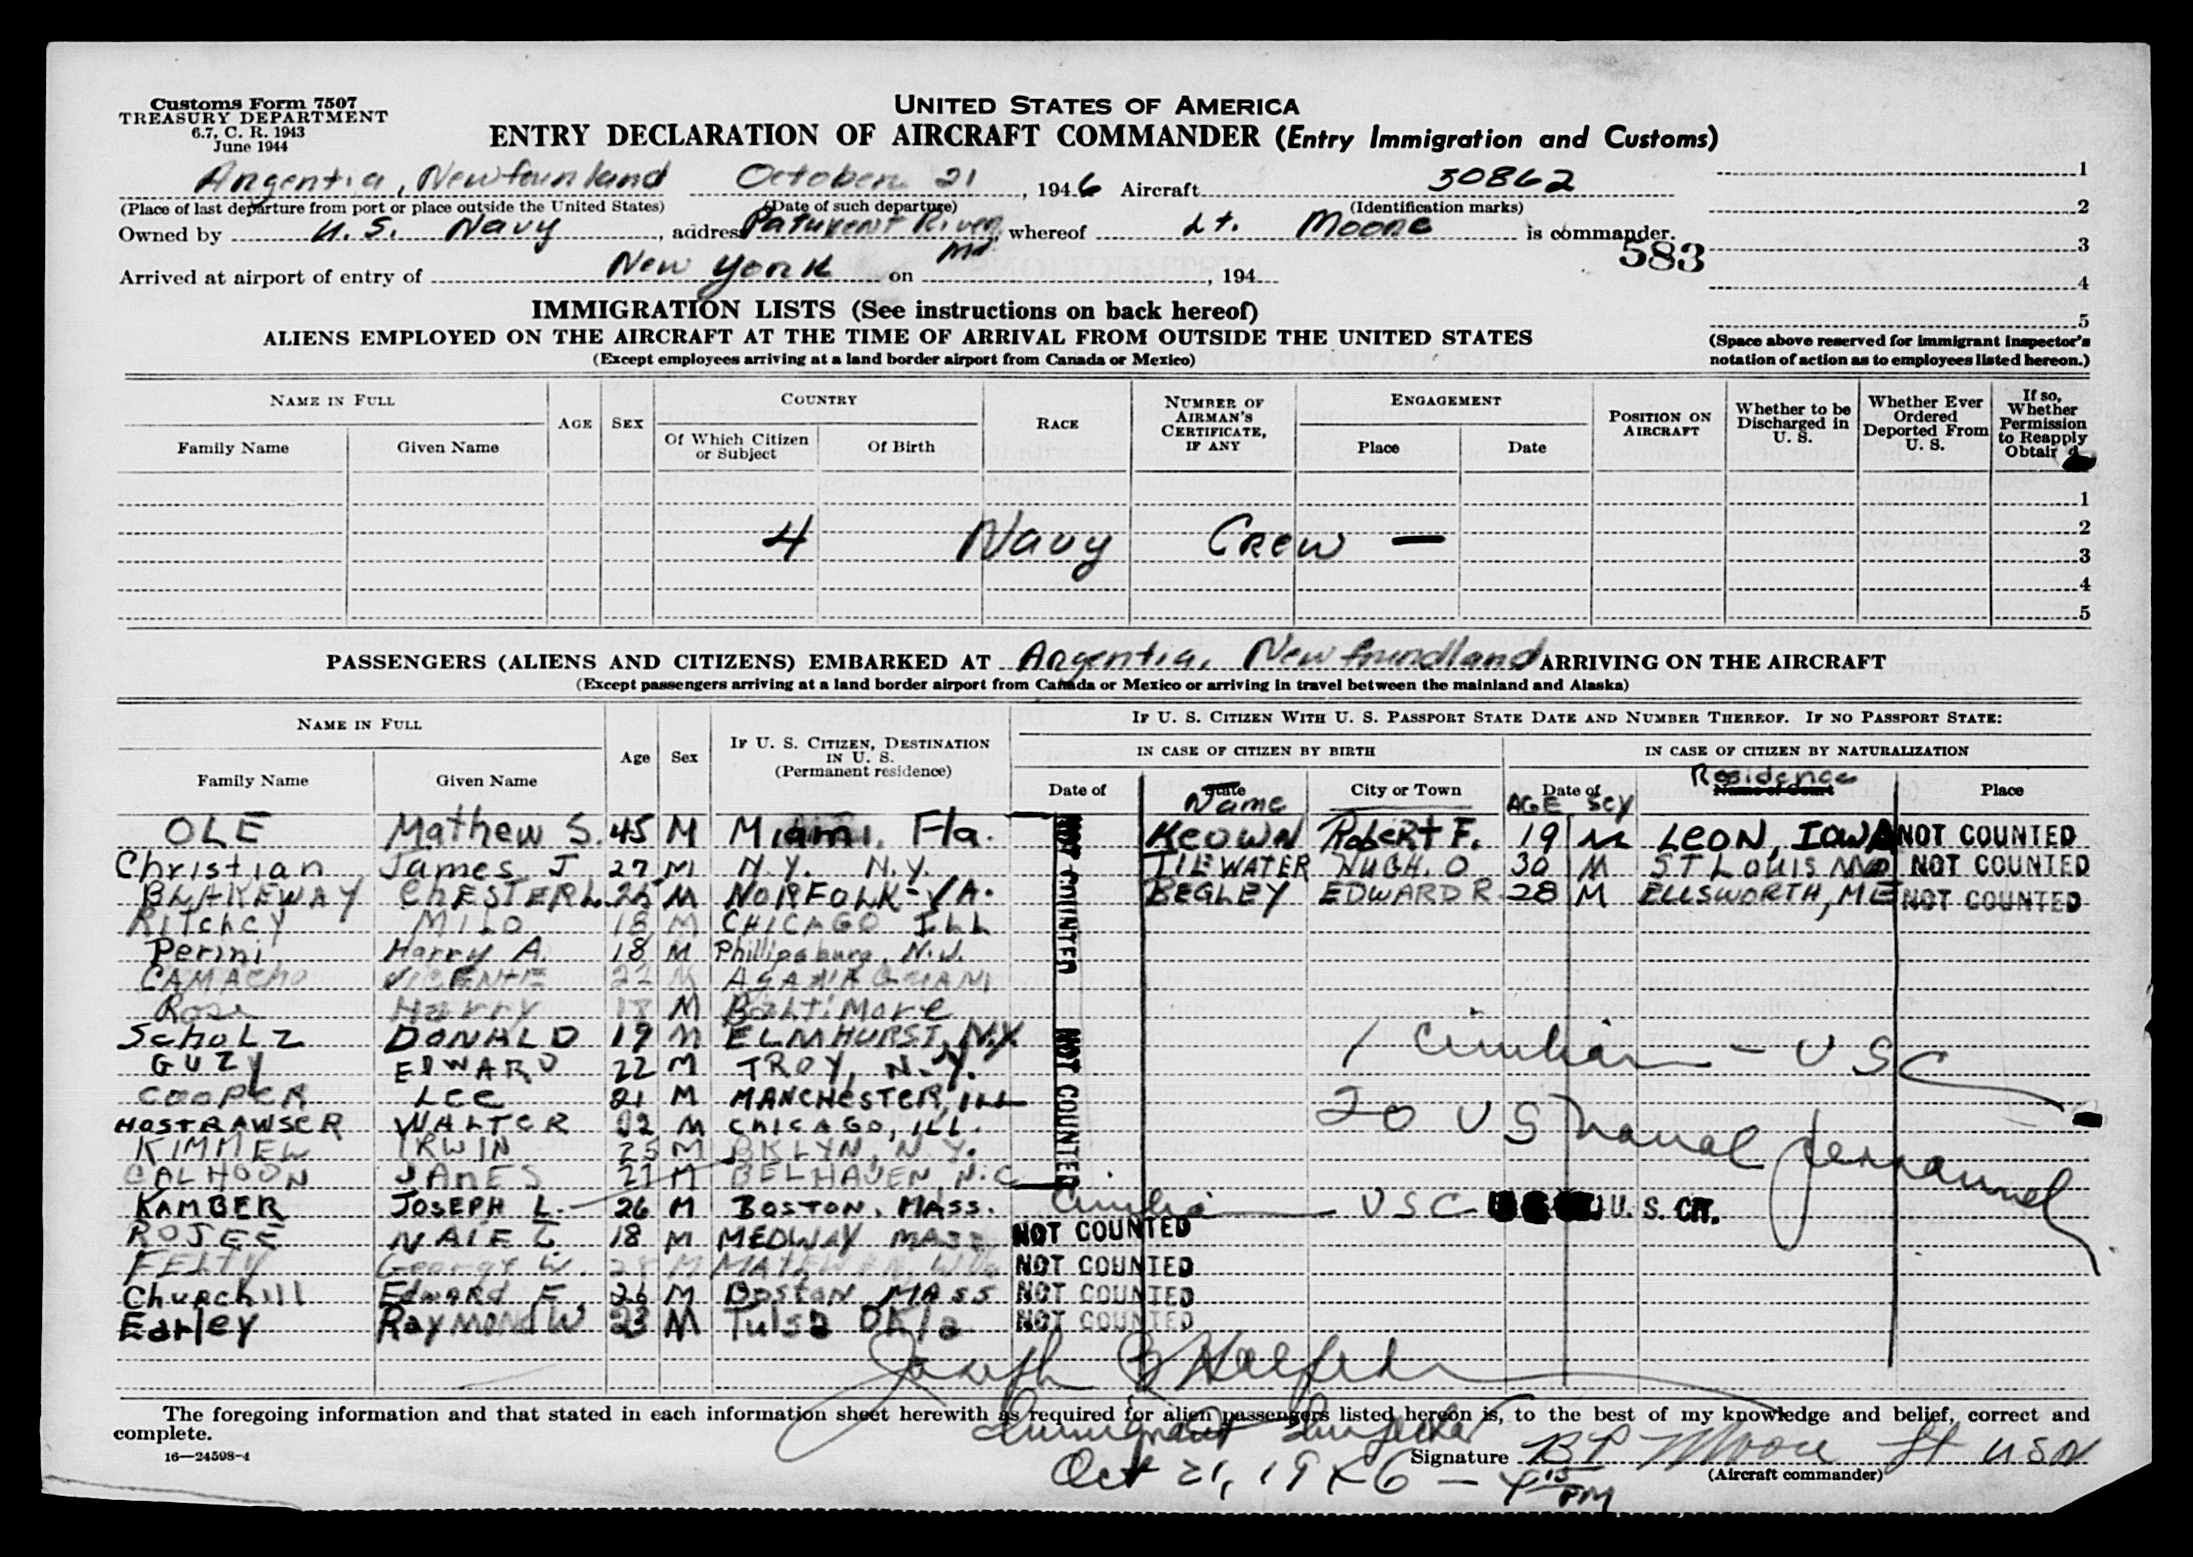 Customs Form 7507
TREASURY DEPARTMENT
6.7, C. R. 1943
June 1944
UNITED STATES OF AMERICA
ENTRY DECLARATION OF AIRCRAFT COMMANDER (Entry Immigration and Customs)
Argentia, Newfounland October 21, 1946 Aircraft 50862 1
(Place of last departure from port or place outside the United States) (Date of such departure) (Identification marks) 2
Owned by U.S. Navy, address Patuxent River, Md whereof Lt. Moore is commander.
583 3
Arrived at airport of entry of New York on , 194 4
IMMIGRATION LISTS (See instructions on back hereof) 5
ALIENS EMPLOYED ON THE AIRCRAFT AT THE TIME OF ARRIVAL FROM OUTSIDE THE UNITED STATES
(Except employees arriving at a land border airport from Canada or Mexico)
(Space above reserved for immigrant inspector's
notation of action as to employees listed hereon.)
NAME IN FULL AGE SEX COUNTRY RACE NUMBER OF AIRMAN'S CERTIFICATE, IF ANY ENGAGEMENT POSITION ON AIRCRAFT Whether to be Discharged in U. S. Whether Ever Ordered Deported From U. S. If so, Whether Permission to Reapply
Family Name Given Name Of Which Citizen or Subject Of Birth Place Date
1
2
4 Navy Crew —
3
4
5
PASSENGERS (ALIENS AND CITIZENS) EMBARKED AT Argentia, Newfoundland ARRIVING ON THE AIRCRAFT
(Except passengers arriving at a land border airport from Canada or Mexico or arriving in travel between the mainland and Alaska)
NAME IN FULL Age Sex IF U. S. CITIZEN, DESTINATION IN U. S. (Permanent residence) IF U. S. CITIZEN WITH U. S. PASSPORT STATE DATE AND NUMBER THEREOF. IF NO PASSPORT STATE:
IN CASE OF CITIZEN BY BIRTH IN CASE OF CITIZEN BY NATURALIZATION
Family Name Given Name Date of State Name City or Town Date of AGE SEX Name of Court Residence Place
OLE Mathew S. 45 M Miami, Fla. KEOWN Robert F. 19 M LEON, IOWA NOT COUNTED
Christian James J 27 M N.Y. N.Y. HUGH. O 30 M ST LOUIS MO NOT COUNTED
BLAKEWAY CHESTER L. 25 M NORFOLK-VA. BEGLEY EDWARD R. 28 M ELLSWORTH, ME NOT COUNTED
Ritchey MILO 18 M CHICAGO ILL
NOT COUNTED
Perini, Harry A. 18 M Phillipsburg, N.J.
CAMACHO VICENTE 22 M
Rose Harry 18 M Baltimore
SCHOLZ DONALD 19 M ELMHURST, N.Y.
1 civilian - USC
GUZY EDWARD 22 M TROY, N.Y.
COOPER LEE 21 M MANCHESTER, ILL
NOT COUNTED
20 US naval personnel
HOSTRAWSER WALTER 22 M CHICAGO, ILL.
KIMMEL IRWIN 25 M BKLYN, N.Y.
CALHOON JAMES 21 M BELHAVEN, N.C.
KAMBER JOSEPH L. 26 M BOSTON, MASS. Civilian USC U. S. CIT.
18 M MEDWAY MASS NOT COUNTED
FELTY George W. M NOT COUNTED
Churchill Edward F 26 M Boston MASS NOT COUNTED
Earley Raymond W 23 M Tulsa Okla NOT COUNTED
Joseph
Immigrant Inspector
The foregoing information and that stated in each information sheet herewith as required for alien passengers listed hereon is, to the best of my knowledge and belief, correct and
complete.
16—24598-1
Signature BP Moore Lt USN
(Aircraft commander)
Oct 21, 1946 - 4 15 PM